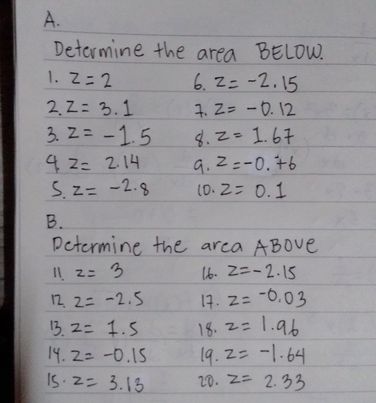 A.
Determine the area BELOW.
1. z = 2
2. z = 3.1
3. z = -1.5
4. z = 2.14
5. z = -2.8
6. z = -2.15
7. z = -0.12
8. z = 1.67
9. z = -0.76
10. z = 0.1
B.
Determine the area ABOVE
11. z = 3
12. z = -2.5
13. z = 1.5
14. z = -0.15
15. z = 3.13
16. z = -2.15
17. z = -0.03
18. z = 1.96
19. z = -1.64
20. z = 2.33